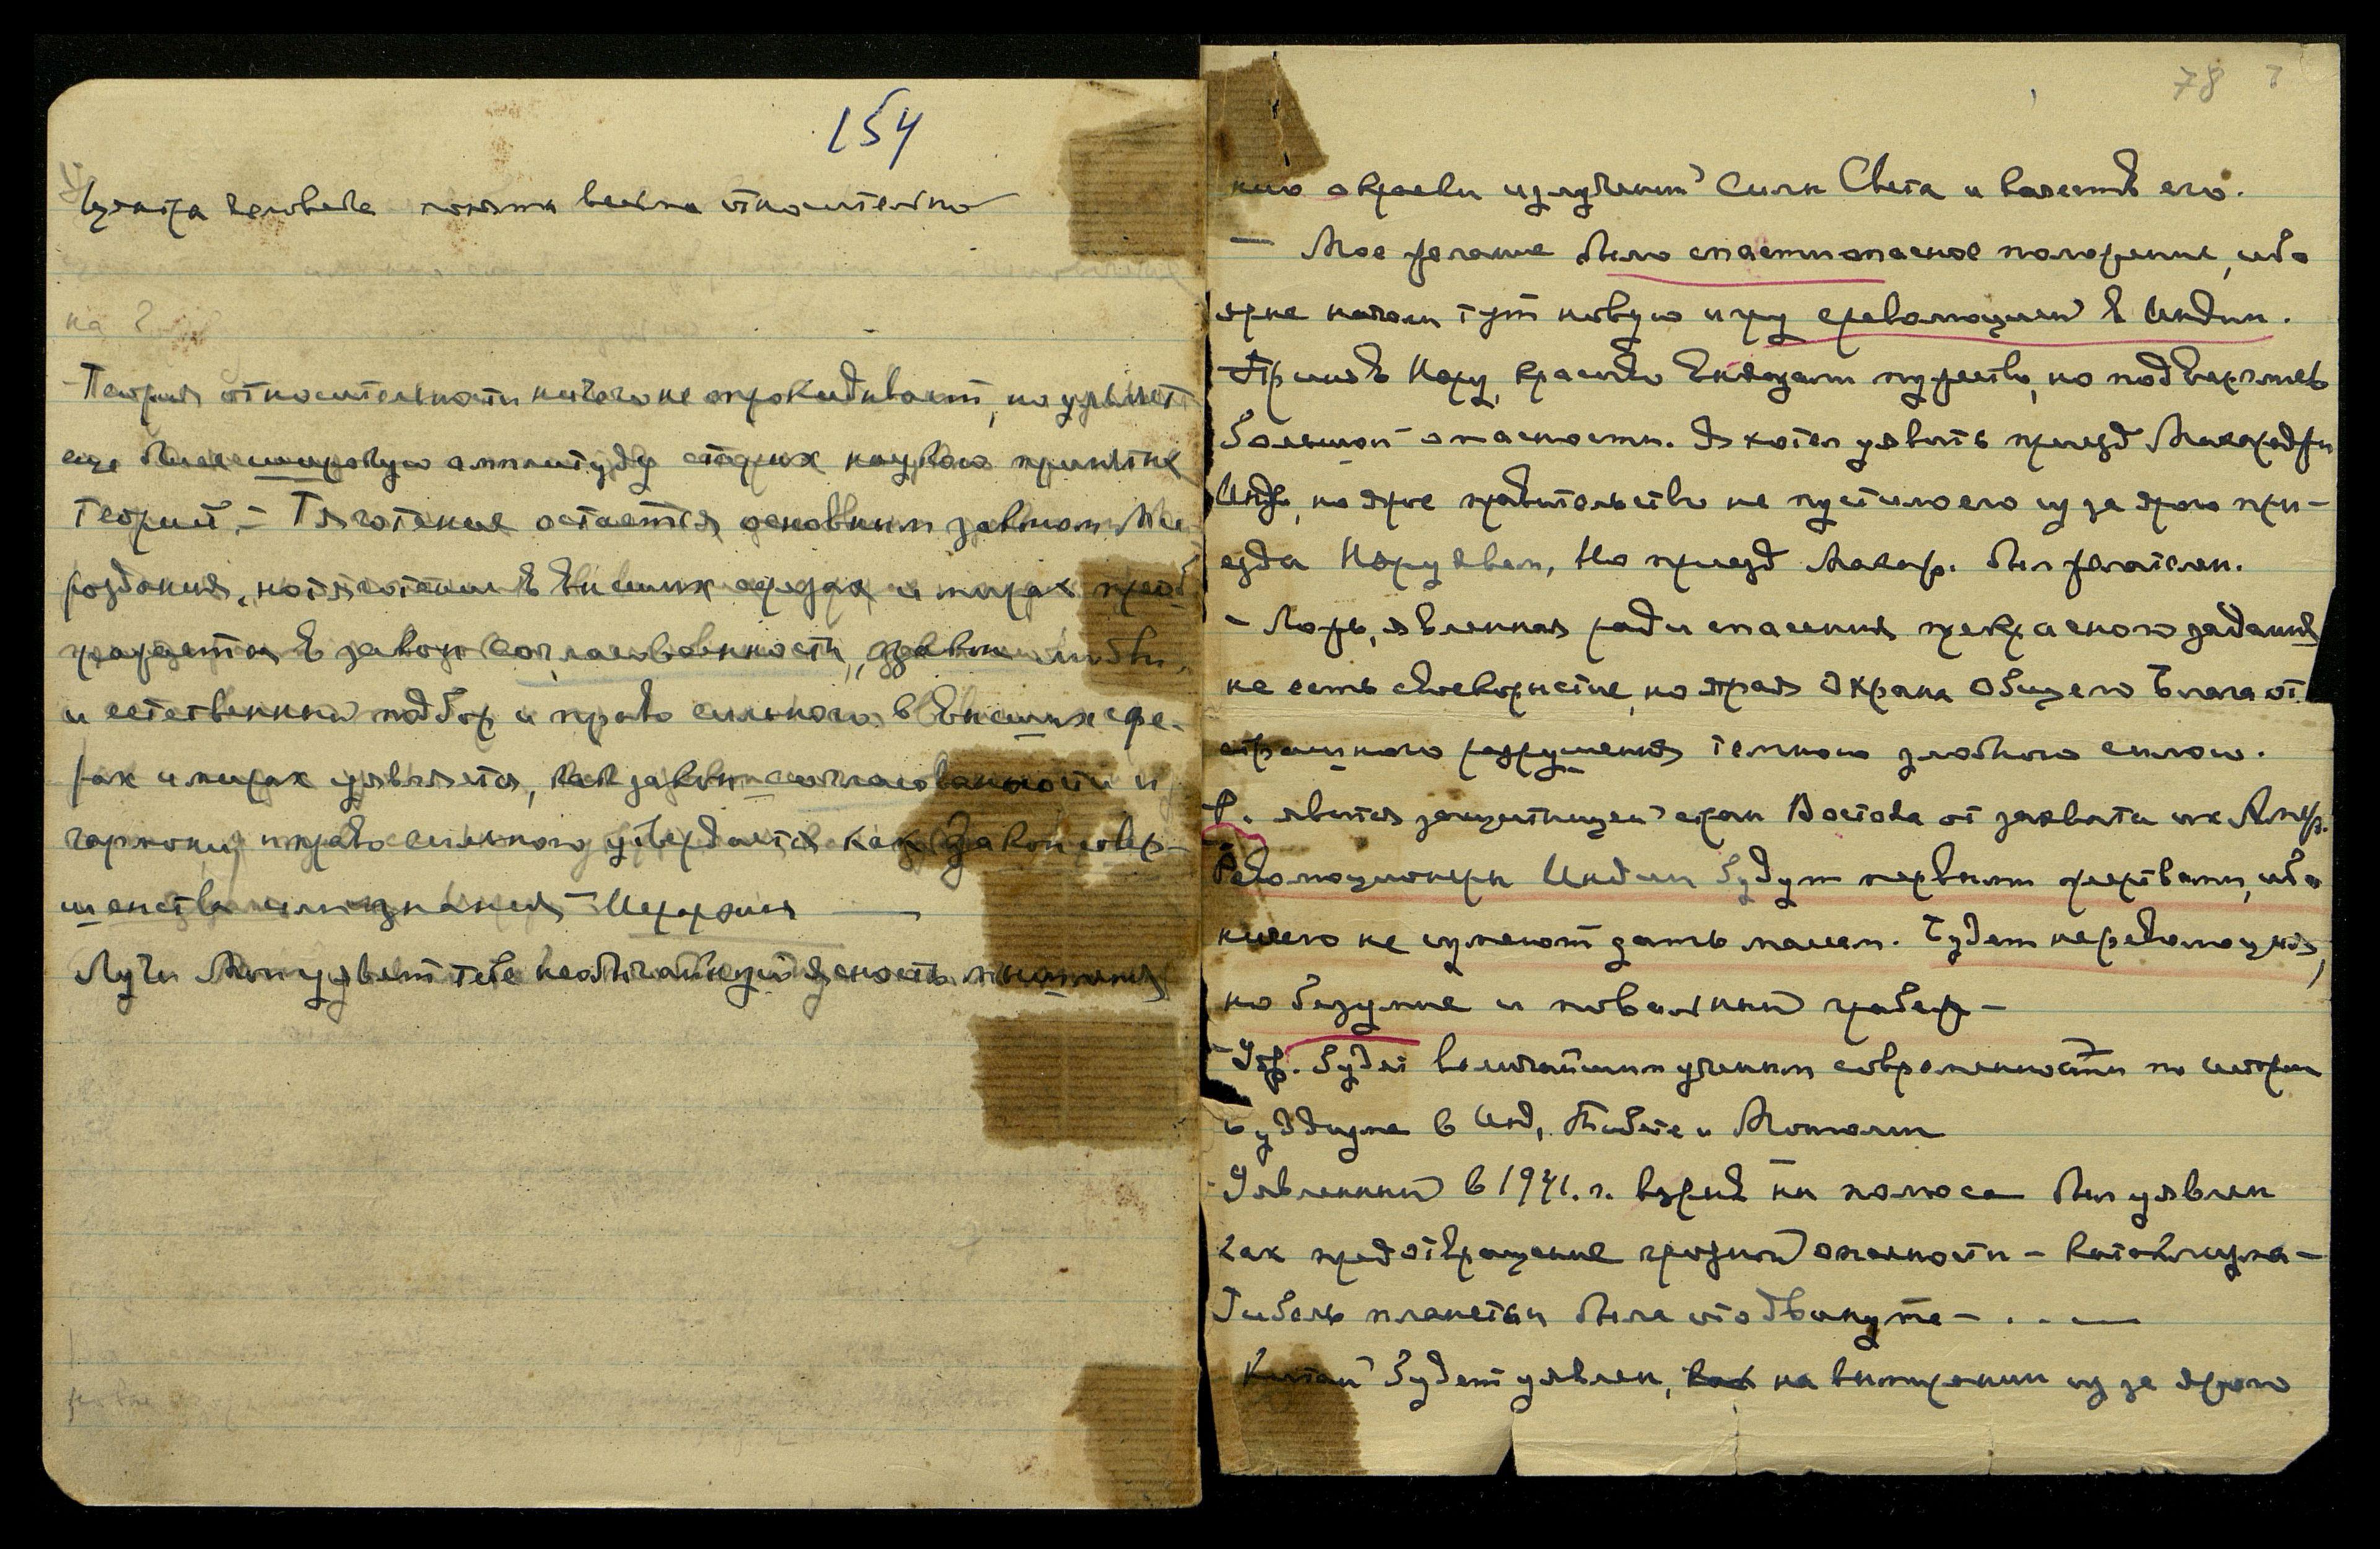 154
человека понята весьма относительно
на
Теория относительности ничего не опрокидывает, но уявляет
еще более широкую амплитуду старых научно принятых
теорий. – Тяготение остается основным законом Миро
создания, но тяготение в высших сферах и мирах преоб
ражается в закон согласованности, закон любви,
и естественный подбор и право сильного в высших сфе-
рах и мирах уявляется, как закон согласованности и
гармонии, и право сильного утверждается как закон совер-
шенства или знания Иерархии —
Лучи Мои уявят тебе необычайную ясность понимания
78
излучений Силы Света и
– Мое желание было спасти опасное положение, ибо
ярые начали тут новую игру с революцией в Индии.
Приняв Неру, красиво Вы явили мужество, но подверглись
большой опасности. Я хотел уявить приезд Махараджи
Инд., но ярое правительство не пустило его из за ярого при-
езда Неру к Вам, Но приезд Махар. был желателен.
– Ложь, явленная ради спасения прекрасного задания
не есть своекорыстие, но ярая охрана Общего Блага от
страшного разрушения темною злобною силою.
Р. явится защитницей стран Востока от захвата их Амер.
Революционеры Индии будут первыми жертвами, ибо
ничего не сумеют дать массам. Будет не революция,
но безумие и повальный грабеж –
– Юр. будет величайшим ученым современности по истории
буддизма в Инд., Тибете и Монголии
Уявленный в 1941. г. взрыв на полюсе был уявлен
как предотвращение грозной опасности – катаклизма –
Гибель планеты была отодвинута – . . —
Китай будет уявлен, как на вымирании из за ярого